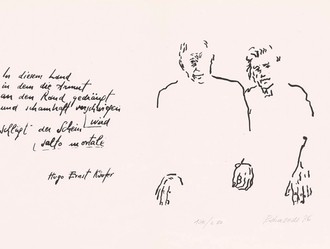 In diesem Land
in dem die Armut
an den Rand gedrängt
und schamhaft verschwiegen
wird
schlägt der Schein
salto mortale
Hugo Ernst Käufer